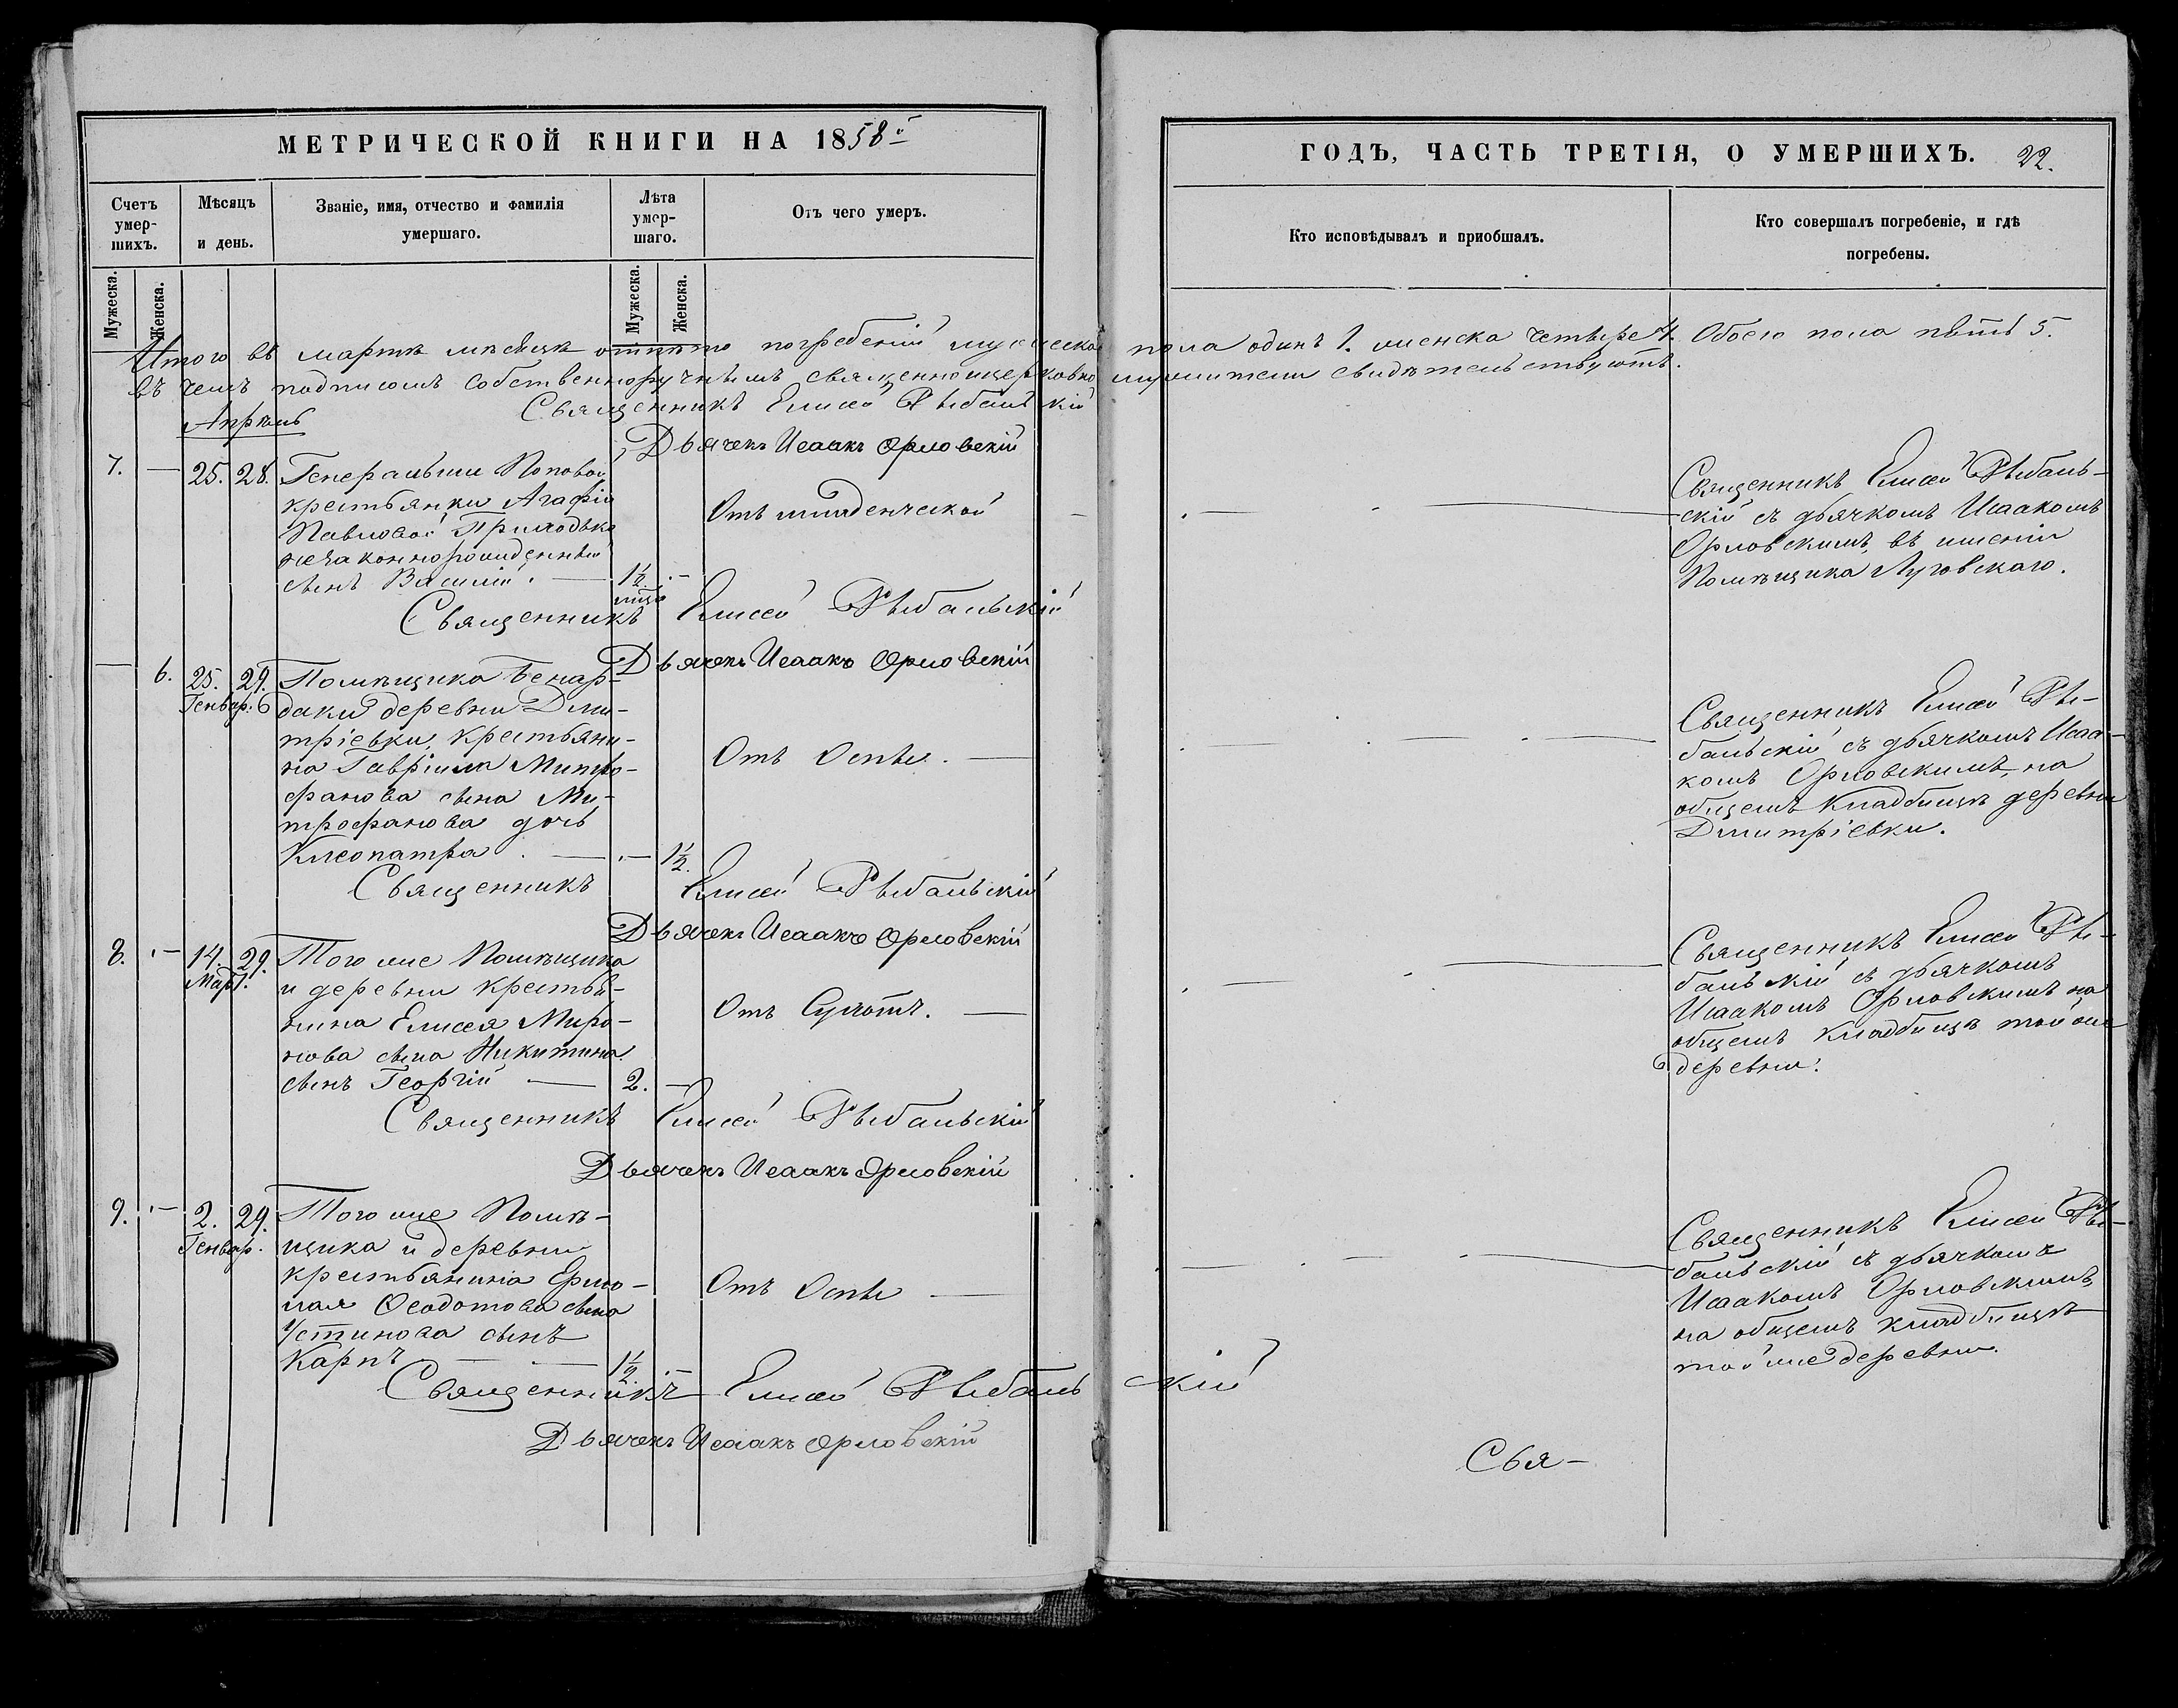 МЕТРИЧЕСКОЙ КНИГИ НА 1858й
ГОДЪ, ЧАСТЬ ТРЕТІЯ, О УМЕРШИХЪ. 22.
Счетъ умер-шихъ.
Мѣсяцъ и день.
Званіе, имя, отчество и фамилія умершаго.
Лѣта умер-шаго.
Отъ чего умеръ.
Кто исповѣдывалъ и пріобщалъ.
Кто совершалъ погребеніе, и гдѣ погребены.
Мужеска.
Женска.
Мужеска.
Женска.
Итого въ мартѣ мѣсяцѣ отпѣто погребеній мужеска пола одинъ 1. женска четыре 4. Обоего пола пять 5.
въ чемъ подписомъ собственноручнымъ священноцерковно служители свидѣтельствуютъ.
Священникъ Елисей Рыбальскій
Апрѣль
Дьячекъ Исаакъ Орловскій
7. — 25. 28. Генеральши Поповой
крестьянки Агафіи
Павловой Приходька
незаконнорожденный
сынъ Василій. — 1½ мца
Отъ младенческой
Священникъ Елисей Рыбаль-
скій съ дьячкомъ Исаакомъ
Орловскимъ, въ имѣніи
Помѣщика Луговскаго.
Священникъ Елисей Рыбальскій
Дьячекъ Исаакъ Орловскій
— 6. 25. Генвар. 29. Помѣщика Бенар-
даки деревни Дми-
тріевки, крестьяни-
на Гавріила Митро-
фанова сына Ми-
трофанова дочь
Клеопатра. — 1½.
Отъ Оспы. —
Священникъ Елисей Ры-
бальскій съ дьячкомъ Исаа-
комъ Орловскимъ, на
общемъ кладбищѣ деревни
Дмитріевки.
Священникъ Елисей Рыбальскій
Дьячекъ Исаакъ Орловскій
8. — 14. Март. 29. Того же Помѣщика
и деревни крестья-
нина Елисея Миро-
нова сына Никитина
сынъ Георгій — 2. —
Отъ Сухотъ. —
Священникъ Елисей Ры-
бальскій съ дьячкомъ
Исаакомъ Орловскимъ на
общемъ кладбищѣ той же
деревни.
Священникъ Елисей Рыбальскій
Дьячекъ Исаакъ Орловскій
9. — 2. Генвар. 29. Того же Помѣ-
щика и деревни
крестьянина Ермо-
лая Ѳеодотова сына
Устинова сынъ
Карпъ. — 1½. —
Отъ Оспы —
Священникъ Елисей Ры-
бальскій съ дьячкомъ
Исаакомъ Орловскимъ,
на общемъ кладбищѣ
той же деревни.
Священникъ Елисей Рыбальскій
Дьячекъ Исаакъ Орловскій
Свя-